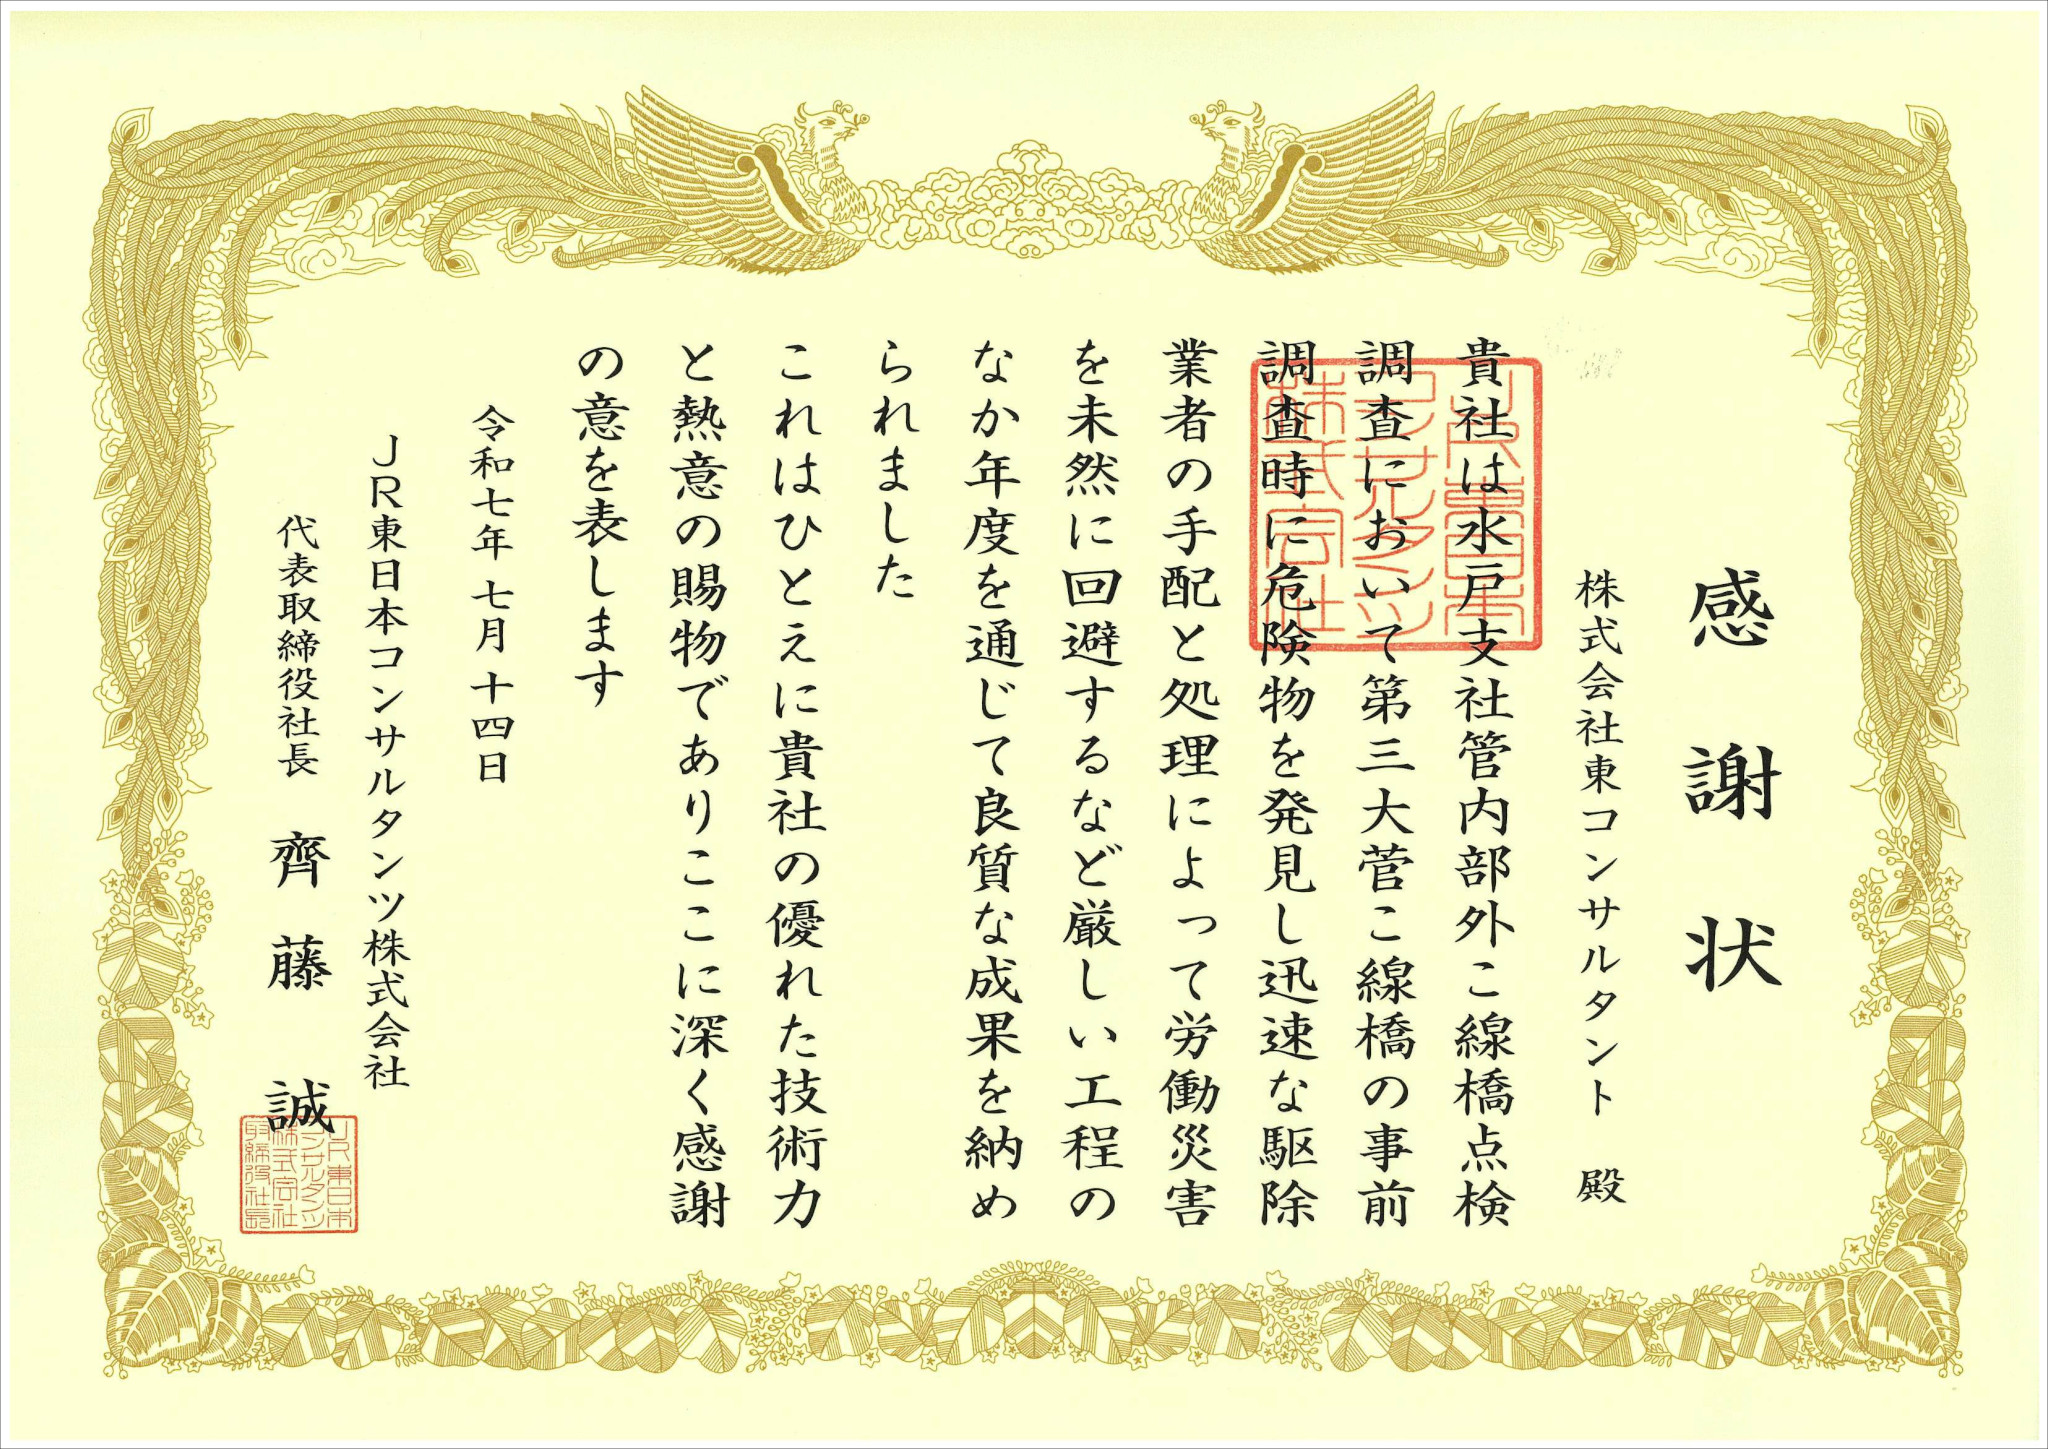 感謝状
株式会社東コンサルタント 殿
貴社は水戸支社管内部外こ線橋点検
調査において第三大菅こ線橋の事前
調査時に危険物を発見し迅速な駆除
業者の手配と処理によって労働災害
を未然に回避するなど厳しい工程の
なか年度を通じて良質な成果を納め
られました
これはひとえに貴社の優れた技術力
と熱意の賜物でありここに深く感謝
の意を表します
令和七年 七月 十四日
JR東日本コンサルタンツ株式会社
代表取締役社長 齊藤 誠
JR東日本
コンサルタンツ
株式会社
JR東日本
コンサルタンツ
株式会社
取締役社長